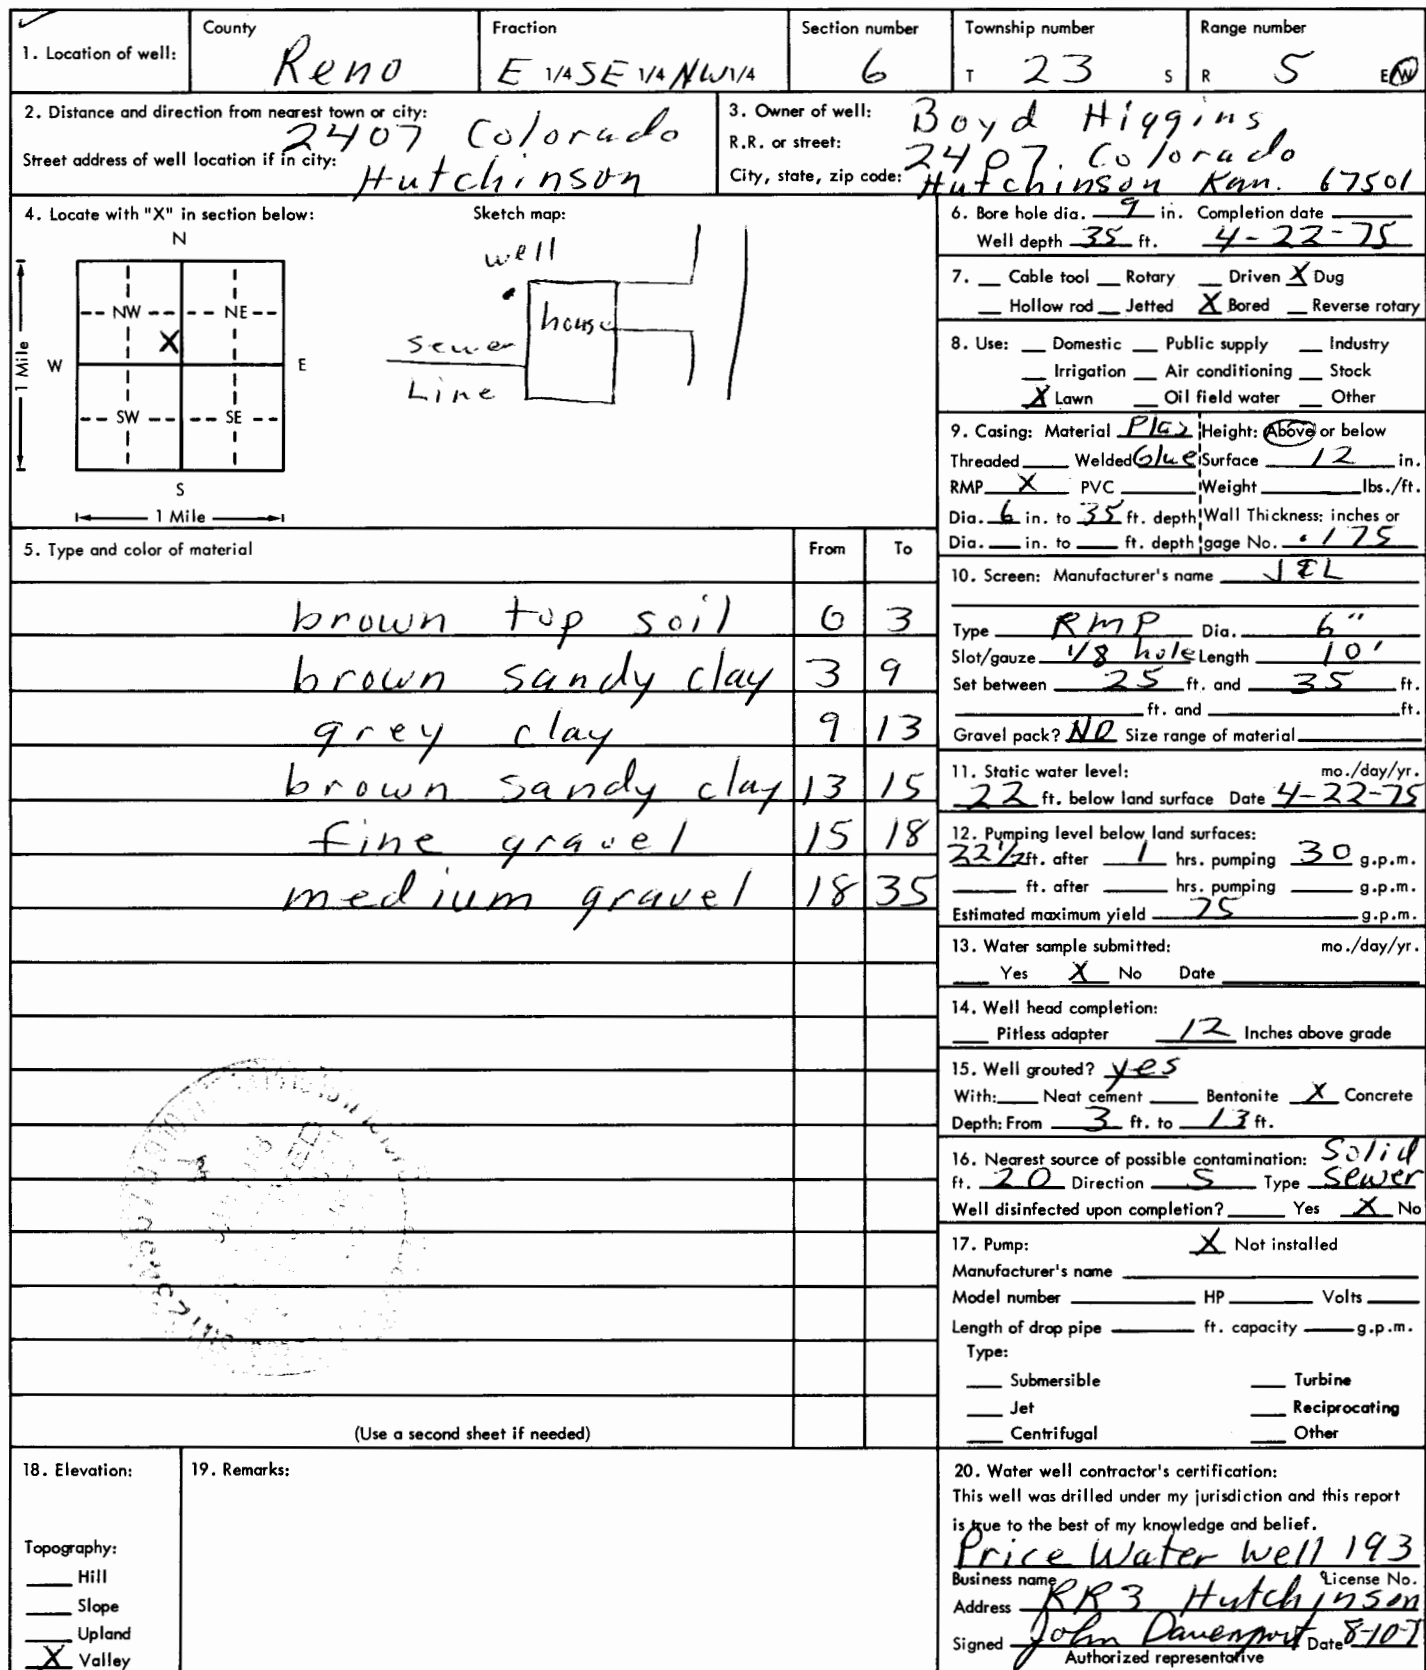 1. Location of well:
County
Reno
Fraction
E 1/4 SE 1/4 NW 1/4
Section number
6
Township number
T 23 S
Range number
R 5 E W
2. Distance and direction from nearest town or city:
2407 Colorado
Street address of well location if in city:
Hutchinson
3. Owner of well: Boyd Higgins
R.R. or street: 2407 Colorado
City, state, zip code: Hutchinson Kan. 67501
4. Locate with "X" in section below:
N
NW NE
X
W E
SW SE
S
1 Mile
1 Mile
Sketch map:
well
house
Sewer
Line
5. Type and color of material From To
brown top soil 0 3
brown sandy clay 3 9
grey clay 9 13
brown sandy clay 13 15
fine gravel 15 18
medium gravel 18 35
(Use a second sheet if needed)
6. Bore hole dia. 9 in. Completion date
Well depth 35 ft. 4-22-75
7. Cable tool Rotary Driven X Dug
Hollow rod Jetted X Bored Reverse rotary
8. Use: Domestic Public supply Industry
Irrigation Air conditioning Stock
X Lawn Oil field water Other
9. Casing: Material Plas Height: Above or below
Threaded Welded Glue Surface 12 in.
RMP X PVC Weight lbs./ft.
Dia. 6 in. to 35 ft. depth Wall Thickness: inches or
Dia. in. to ft. depth gage No. .175
10. Screen: Manufacturer's name
Type RMP Dia. 6"
Slot/gauze 1/8 hole Length 10'
Set between 25 ft. and 35 ft.
ft. and ft.
Gravel pack? NO Size range of material
11. Static water level: mo./day/yr.
22 ft. below land surface Date 4-22-75
12. Pumping level below land surfaces:
22 1/2 ft. after 1 hrs. pumping 30 g.p.m.
ft. after hrs. pumping g.p.m.
Estimated maximum yield 75 g.p.m.
13. Water sample submitted: mo./day/yr.
Yes X No Date
14. Well head completion:
Pitless adapter 12 Inches above grade
15. Well grouted? yes
With: Neat cement Bentonite X Concrete
Depth: From 3 ft. to 13 ft.
16. Nearest source of possible contamination: Solid
ft. 20 Direction S Type Sewer
Well disinfected upon completion? Yes X No
17. Pump: X Not installed
Manufacturer's name
Model number HP Volts
Length of drop pipe ft. capacity g.p.m.
Type:
Submersible Turbine
Jet Reciprocating
Centrifugal Other
18. Elevation:
Topography:
Hill
Slope
Upland
X Valley
19. Remarks:
20. Water well contractor's certification:
This well was drilled under my jurisdiction and this report
is true to the best of my knowledge and belief.
Price Water Well 193
Business name License No.
Address RR3 Hutchinson
Signed John Davenport Date 8-10-7
Authorized representative